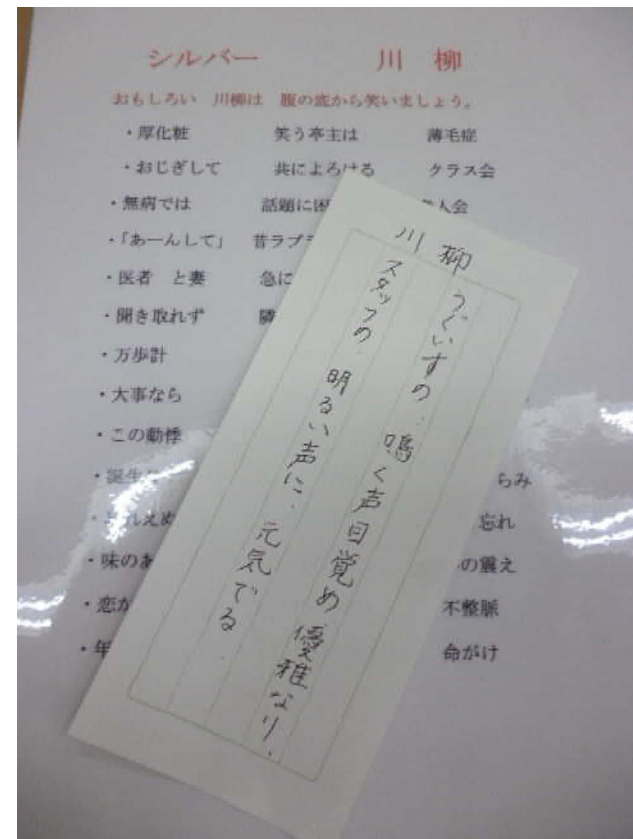 シルバー 川柳
おもしろい 川柳は 腹の底から笑いましょう。
・厚化粧 笑う亭主は 薄毛症
・おじぎして 共によろける クラス会
・無病では 話題に困 人会
・「あーんして」 昔ラブラ
・医者 と妻 急に
・聞き取れず 隣
・万歩計
・大事なら
・この動悸
・誕生 らみ
えぬ 忘れ
・味のあ の震え
・恋か 不整脈
・年 命がけ
川柳
うぐいすの 鳴く声目覚め 優雅なり、
スタッフの 明るい声に 元気でる